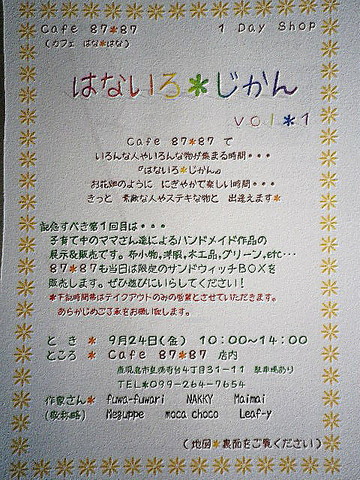 Cafe 87*87 1 Day Shop
(カフェ はな*はな)
はないろ*じかん
vol*1
Cafe 87*87 で
いろんな人やいろんな物が集まる時間・・・
『はないろ*じかん』
お花畑のように にぎやかで楽しい時間・・・
きっと 素敵な人やステキな物と 出逢えます*
記念すべき第1回目は・・・
子育て中のママさん達によるハンドメイド作品の
展示&販売です。布小物,洋服,木工品,グリーン,etc・・・
87*87も当日は限定のサンドウィッチBOXを
販売します。ぜひ遊びにいらしてください!
*下記時間帯はテイクアウトのみの営業とさせていただきます。
あらかじめご了承をお願い致します。
とき * 9月24日(金) 10:00〜14:00
ところ * Cafe 87*87 店内
鹿児島市皇徳寺台4丁目31-11 駐車場あり
TEL*099-264-7654
作家さん* fuwa-fuwari NAKKY Maimai
(敬称略) Meguppe moca choco Leaf-y
(地図*裏面をご覧ください)